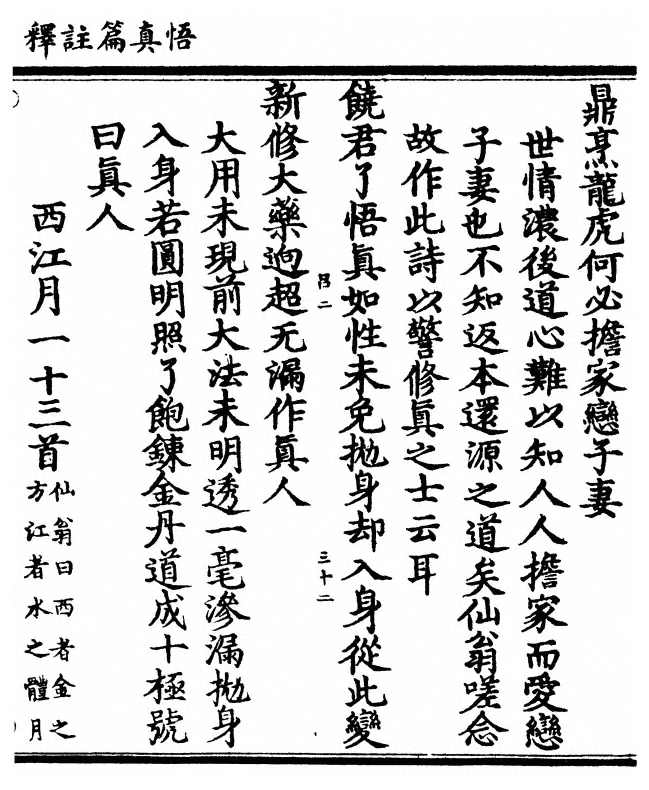 悟真篇註釋
鼎烹龍虎何必擔家戀子妻
世情濃後道心難以知人人擔家而愛戀
子妻也不知返本還源之道矣仙翁嗟念
故作此詩以警修眞之士云耳
饒君了悟眞如性未免拋身却入身從此變
新修大藥逈超无漏作眞人
大用未現前大法未明透一毫滲漏拋身
入身若圓明照了飽鍊金丹道成十極號
曰眞人
西江月一十三首仙翁曰西者金之
方江者水之體月
呂二
三十二